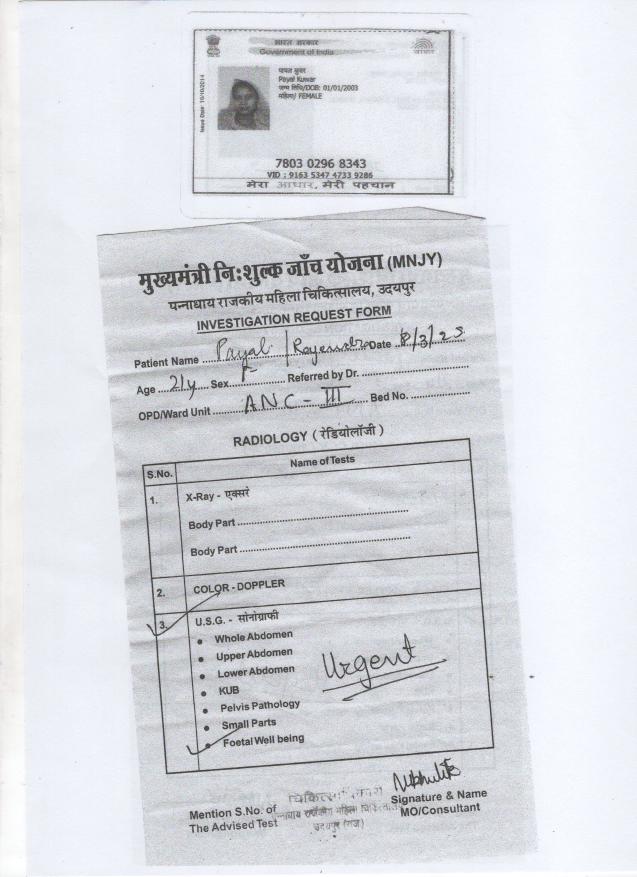 भारत सरकार
Government of India
आधार
Issue Date: 10/10/2014
पायल कुवर
Payal Kuwar
जन्म तिथि/DOB: 01/01/2003
महिला/ FEMALE
7803 0296 8343
VID : 9163 5347 4733 9286
मेरा आधार, मेरी पहचान
मुख्यमंत्री निःशुल्क जाँच योजना (MNJY)
पन्नाधाय राजकीय महिला चिकित्सालय, उदयपुर
INVESTIGATION REQUEST FORM
Patient Name Payal / Date 8/3/25
Age 21y Sex F Referred by Dr.
OPD/Ward Unit ANC - III Bed No.
RADIOLOGY ( रेडियोलॉजी )
S.No. Name of Tests
1. X-Ray - एक्सरे
Body Part
Body Part
2. COLOR - DOPPLER
3. U.S.G. - सोनोग्राफी
• Whole Abdomen
• Upper Abdomen
• Lower Abdomen
• KUB
• Pelvis Pathology
• Small Parts
• Foetal Well being
Urgent
Mention S.No. of
The Advised Test
पन्नाधाय राजकीय महिला
उदयपुर (राज.)
Signature & Name
MO/Consultant